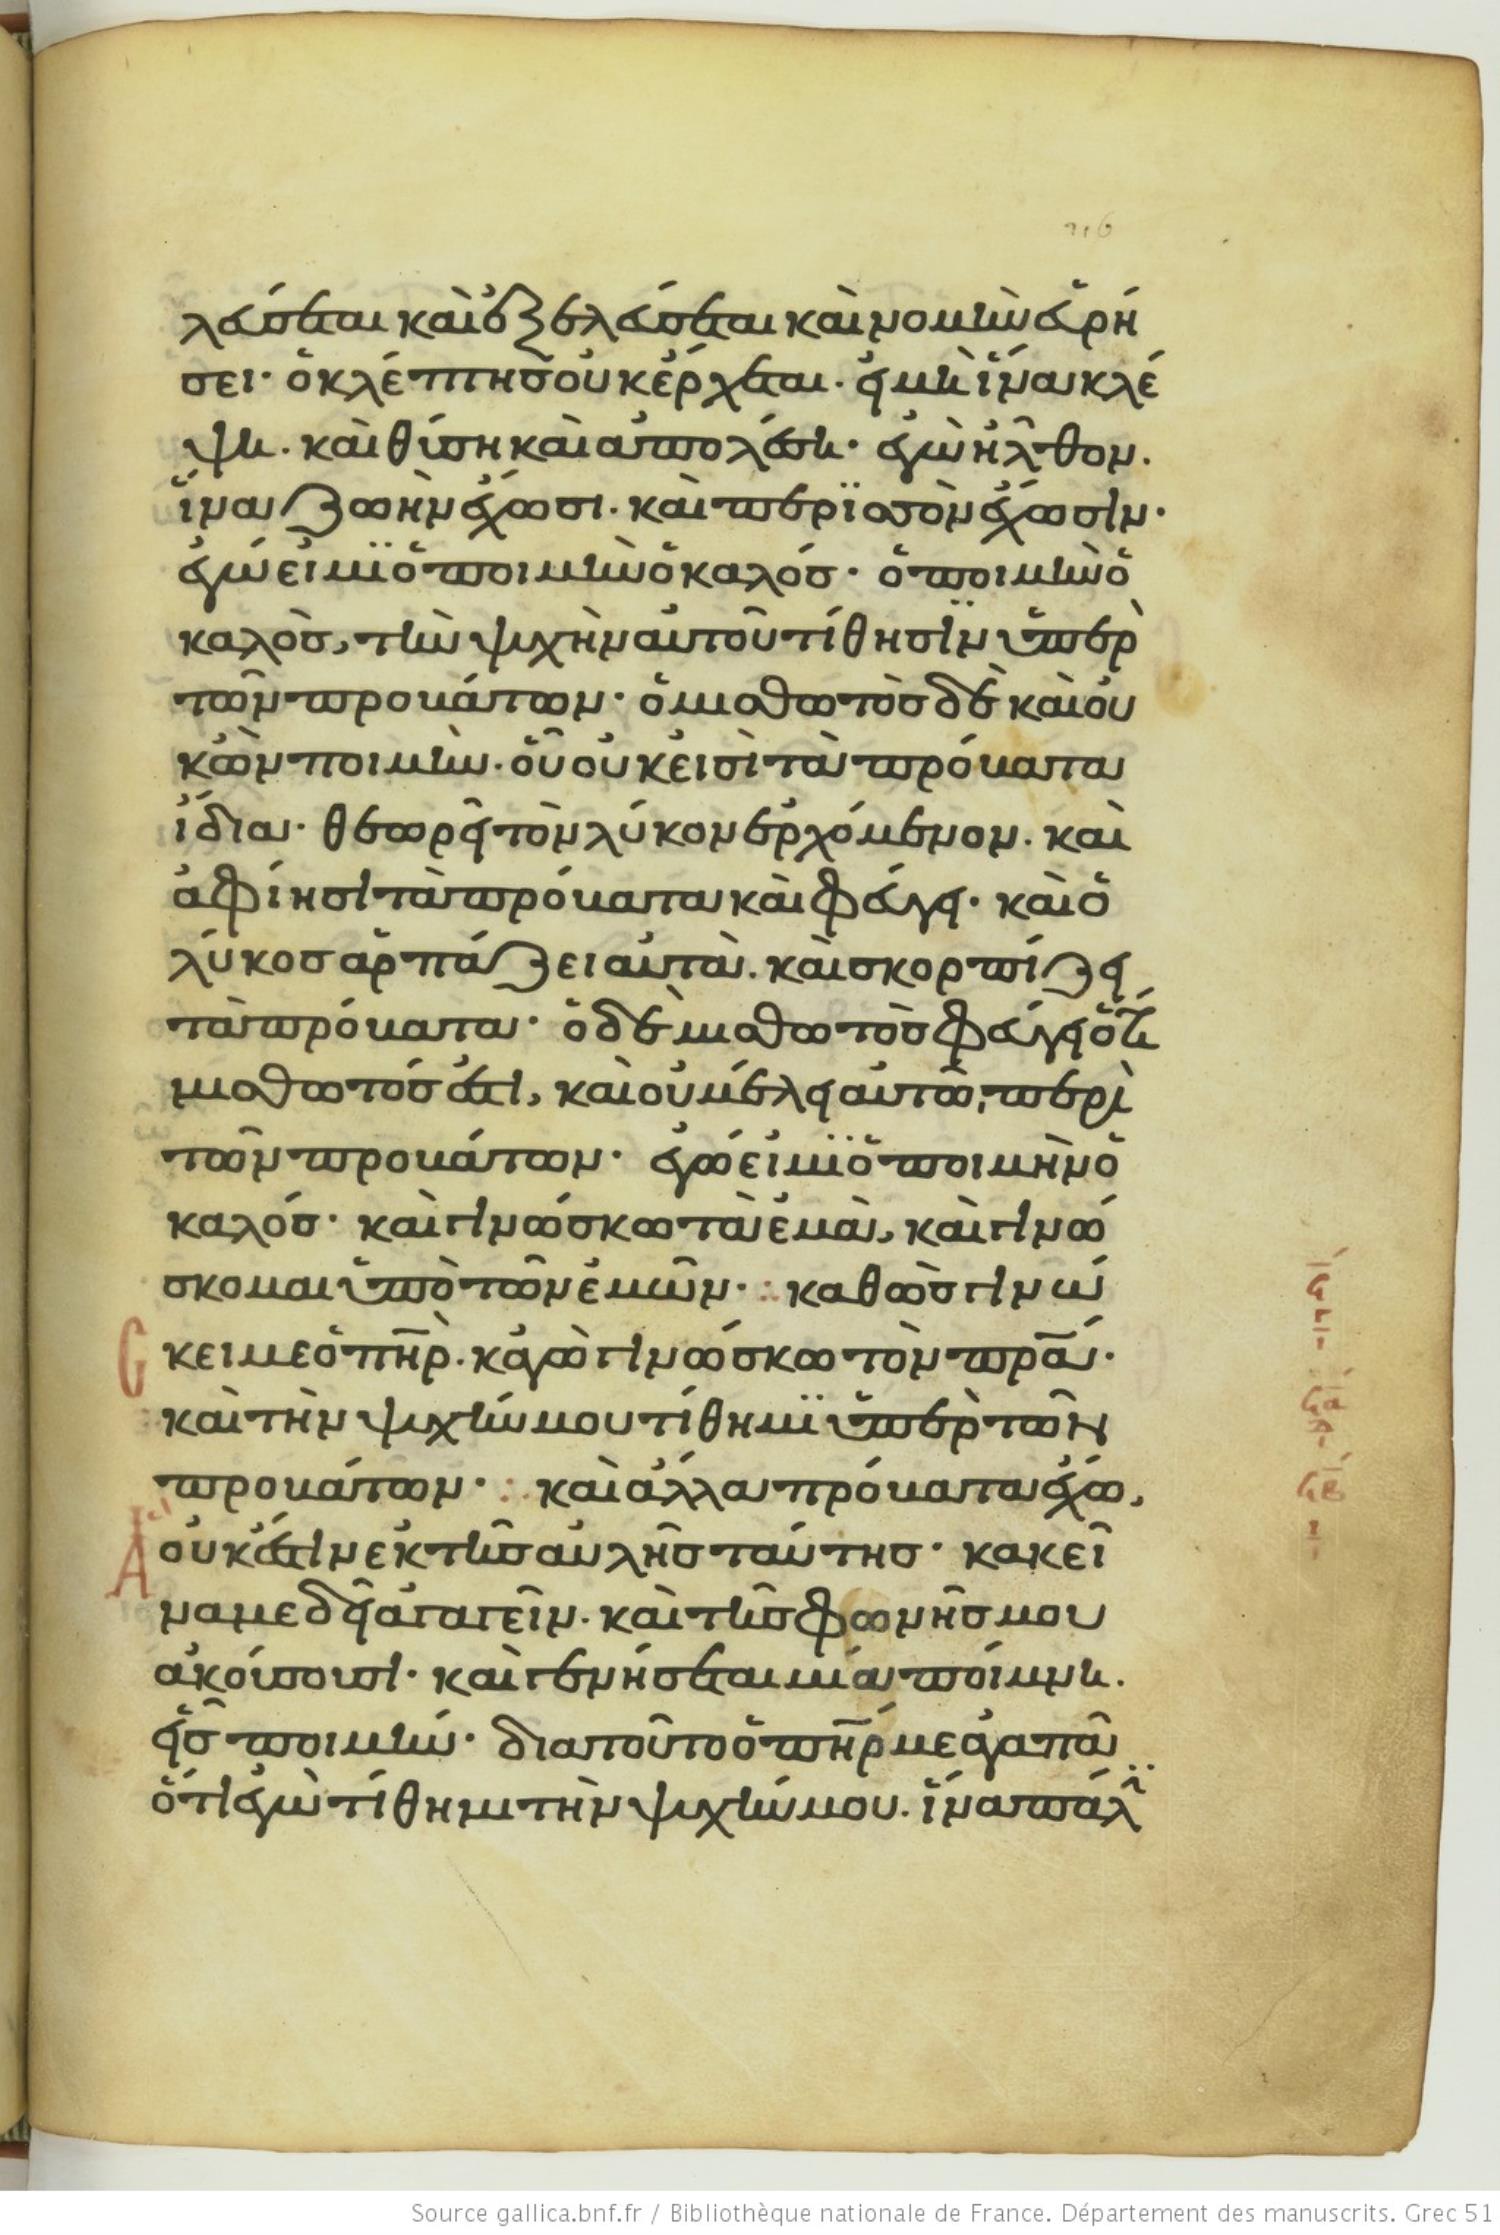 λεύσεται καὶ ἐξελεύσεται καὶ νομὴν εὑρή
σει· ὁ κλέπτησ οὐκ ἔρχεται· εἰ μὴ ἵνα κλέ
ψη· καὶ θύση καὶ ἀπολέση· ἐγὼ ἦλθον·
ἵνα ζωὴν ἔχωσι· καὶ περϊσσὸν ἔχωσιν·
ἐγώ εἰμϊ ὁ ποιμὴν ὁ καλόσ· ὁ ποιμὴν ὁ
καλὸσ, τὴν ψυχὴν αὐτοῦ τίθησϊν ὑπὲρ
τῶν προβάτων· ὁ μισθωτὸσ δὲ καὶ οὐ
κ ὢν ποιμὴν· οὗ οὐκ εἰσὶ τὰ πρόβατα
ἴδια· θεωρεῖ τὸν λύκον ἐρχόμενον· καὶ
ἀφίησι τὰ πρόβατα καὶ φεύγει· καὶ ὁ
λύκοσ ἁρπάζει αὐτὰ· καὶ σκορπίζει
τὰ πρόβατα· ὁ δὲ μισθωτὸσ φεύγει ὅτι
μισθωτόσ ἐστι, καὶ οὐ μέλει αὐτῶ, περὶ
τῶν προβάτων· ἐγώ εἰμϊ ὁ ποιμὴν ὁ
καλόσ· καὶ γινώσκω τὰ ἐμὰ, καὶ γινώ
σκομαι ὑπὸ τῶν ἐμῶν· καθὼσ γινώ
κει με ὁ πὴρ· κἀγὼ γινώσκω τὸν πρα·
καὶ τὴν ψυχήν μου τίθημϊ ὑπὲρ τῶν
προβάτων· καὶ ἄλλα πρόβατα ἔχω,
οὐκ ἔστιν ἐκ τῆσ αὐλῆσ ταύτησ· κακεῖ
να με δεῖ ἀγαγεῖν· καὶ τῆσ φωνῆσ μου
ἀκούσουσι· καὶ γενήσεται μία ποίμνη·
εἷσ ποιμήν· δια τοῦτο ὁ πήρ με ἀγαπᾶ
ὅτι ἐγὼ τίθημι τὴν ψυχήν μου· ἵνα πάλ
Source gallica.bnf.fr / Bibliothèque nationale de France. Département des manuscrits. Grec 51